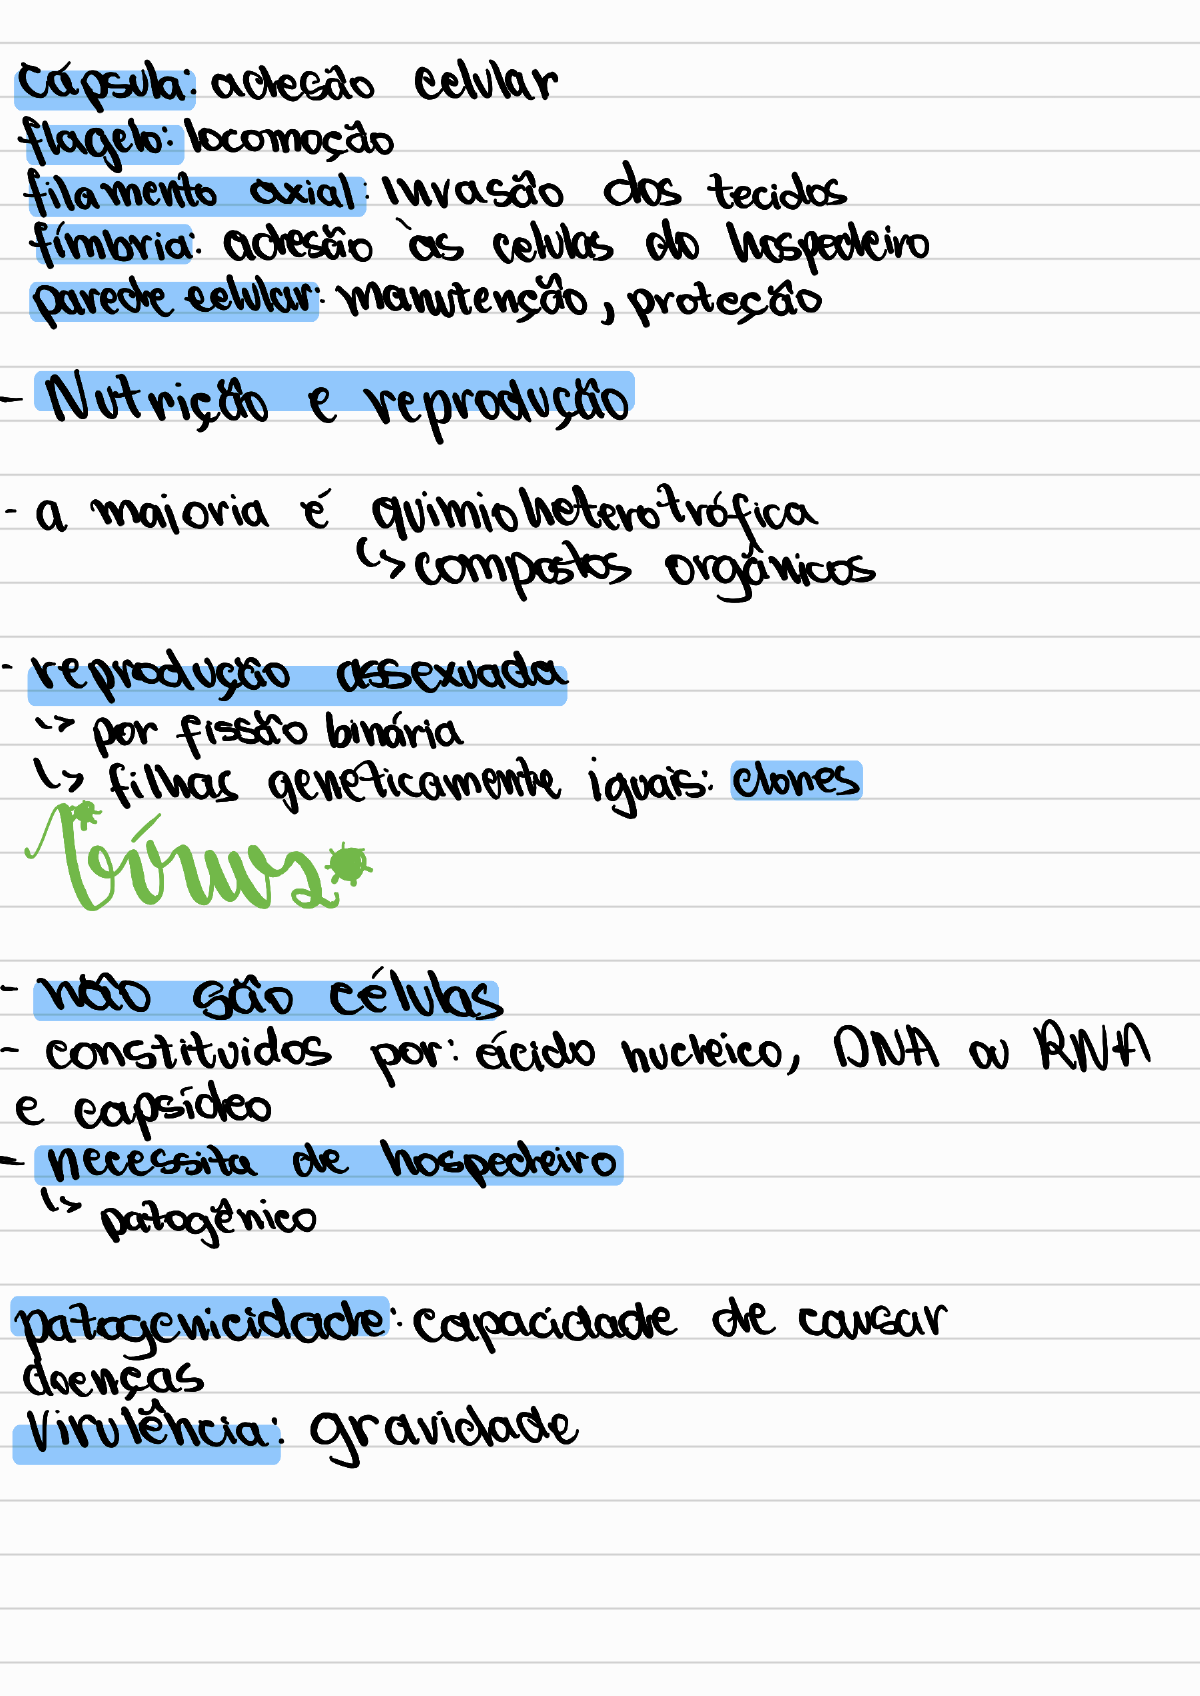 Cápsula: adecão celular
flagelo: locomoção
filamento axial: invasão dos tecidos
fímbria: adesão às celulas do hospedeiro
parede celular: manutenção, proteção
- Nutrição e reprodução
- a maioria é quimioheterotrófica
↳ compostos orgânicos
- reprodução assexuada
↳ por fissão binária
↳ filhas geneticamente iguais: clones
Vírus
- não são células
- constituidos por: ácido nucleico, DNA ou RNA
e capsídeo
- necessita de hospedeiro
↳ patogênico
patogenicidade: capacidade de causar
doenças
Virulência: gravidade